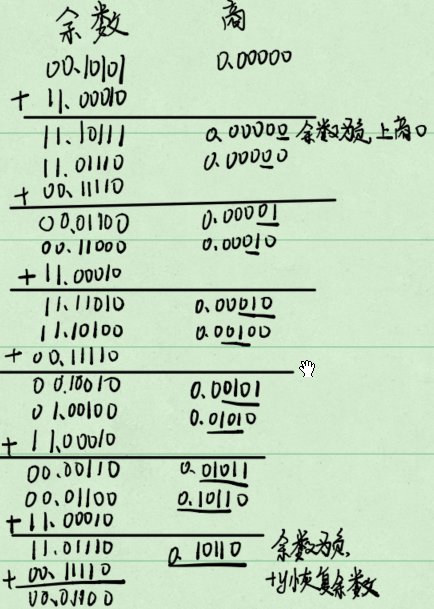 余数 商
00.10101 0.00000
+ 11.00010
11.10111 0.00000 余数为负,上商0
11.01110 0.00000
+ 00.11110
00.01100 0.00001
00.11000 0.00010
+ 11.00010
11.11010 0.00010
11.10100 0.00100
+ 00.11110
00.10010 0.00101
01.00100 0.01010
+ 11.00010
00.00110 0.01011
00.01100 0.10110
+ 11.00010
11.01110 0.10110 余数为负,
+ 00.11110 +y恢复余数
00.01100